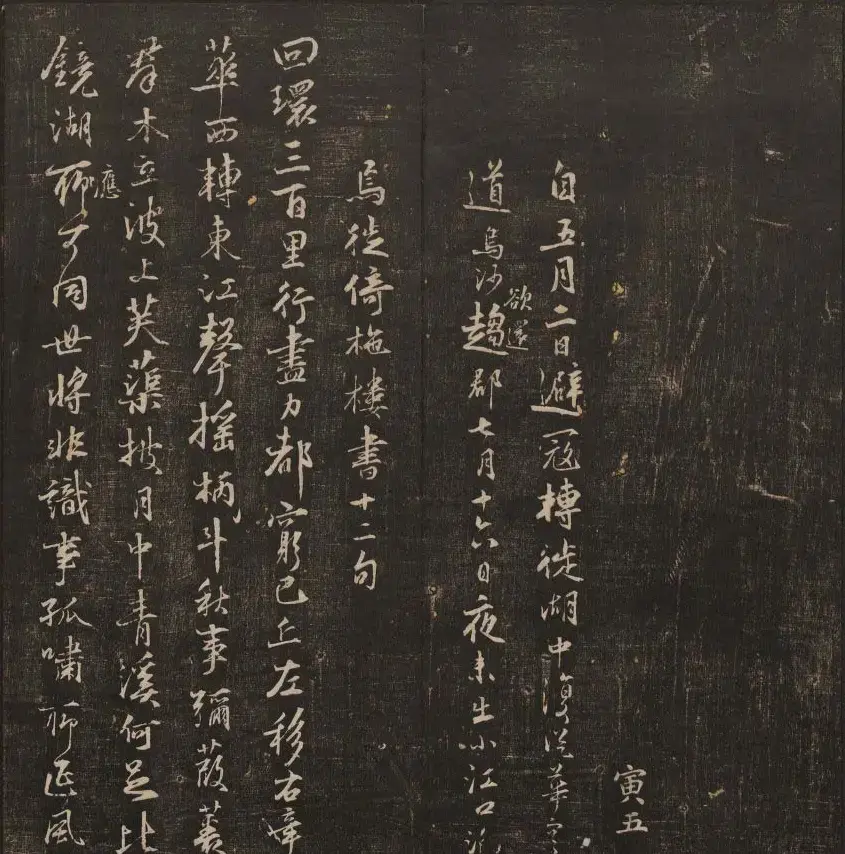 寅五
自五月二日避寇轉徙湖中復從華亭
道烏泖欲還趨郡七月十六日夜未出小江口泊
烏徙倚柂樓書十二句
回環三百里行盡力都窮巳丘左移右嶂
華西轉東江聲搖柄斗秋事彌葭菼
群木立波上芙蕖披月中青溪何足比
鏡湖聊應可同世將非識事孤嘯聊迎風